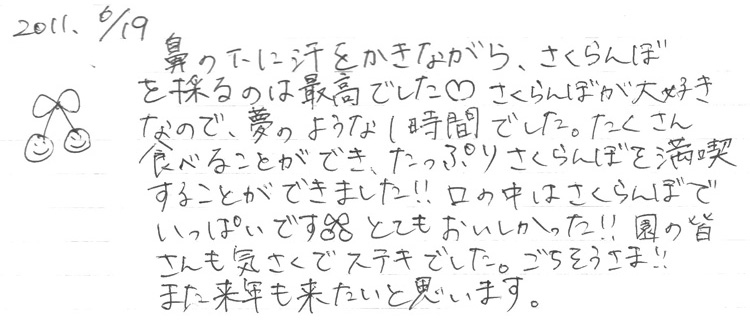 2011. 6/19
鼻の下に汗をかきながら、さくらんぼ
を採るのは最高でした♡ さくらんぼが大好き
なので、夢のような1時間でした。たくさん
食べることができ、たっぷりさくらんぼを満喫
することができました!! 口の中はさくらんぼで
いっぱいです とてもおいしかった!! 園の皆
さんも気さくでステキでした。ごちそうさま!!
また来年も来たいと思います。